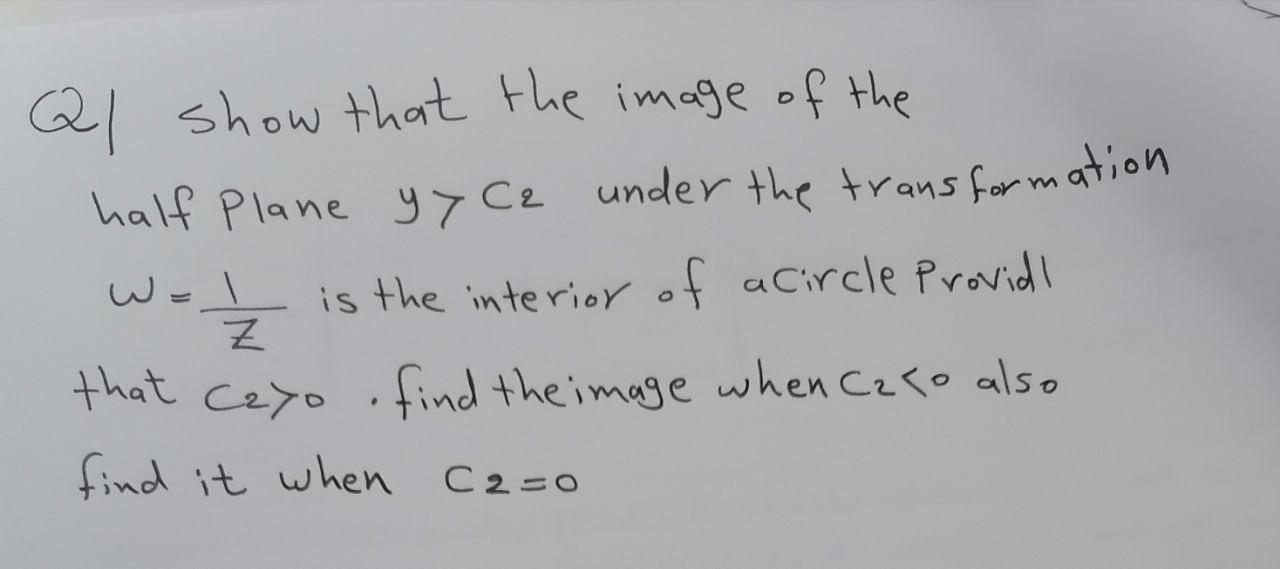 Q1 show that the image of the
half Plane y > C2 under the transformation
w = 1/z is the interior of a Circle Providl
that C2>0 . find the image when C2<0 also
find it when C2=0